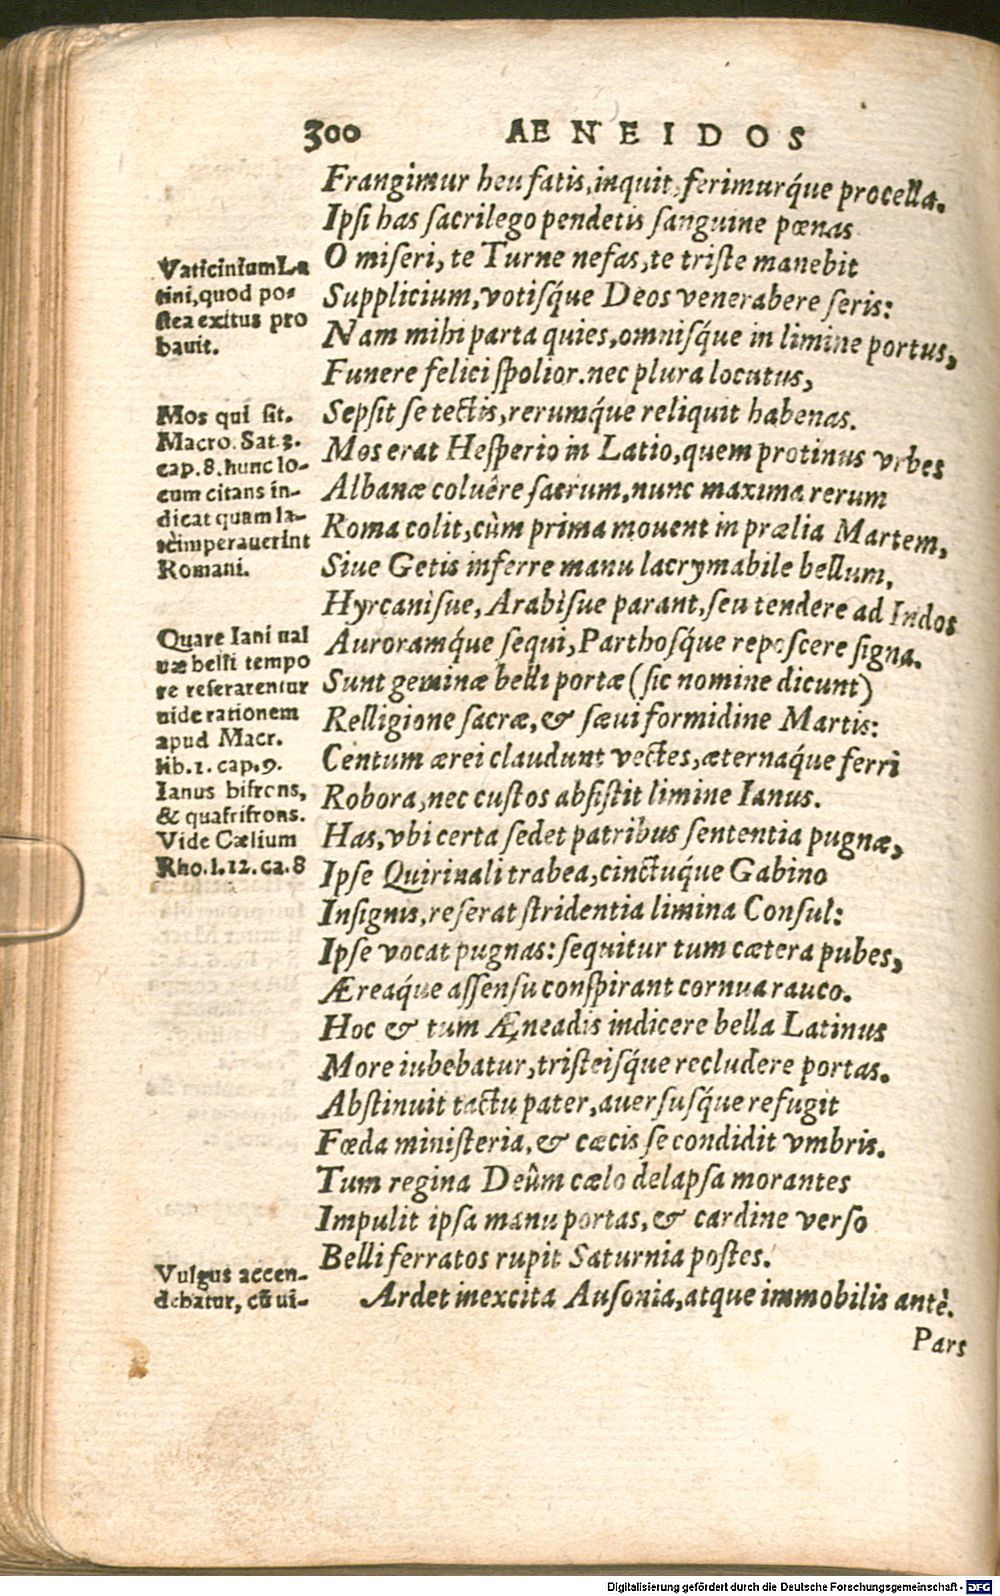 300 AENEIDOS
Frangimur heu fatis, inquit, ferimurq́ue procella.
Ipsi has sacrilego pendetis sanguine pœnas
O miseri, te Turne nefas, te triste manebit
Supplicium, votisq́ue Deos venerabere seris:
Nam mihi parta quies, omnisq́ue in limine portus,
Funere felici spolior. nec plura locutus,
Sepsit se tectis, rerumq́ue reliquit habenas.
Mos erat Hesperio in Latio, quem protinus vrbes
Albanæ coluêre sacrum, nunc maxima rerum
Roma colit, cùm prima mouent in prælia Martem,
Siue Getis inferre manu lacrymabile bellum,
Hyrcanìsue, Arabìsue parant, seu tendere ad Indos
Auroramq́ue sequi, Parthosq́ue reposcere signa.
Sunt geminæ belli portæ (sic nomine dicunt)
Relligione sacræ, & sæui formidine Martis:
Centum ærei claudunt vectes, æternaq́ue ferri
Robora, nec custos absistit limine Ianus.
Has, vbi certa sedet patribus sententia pugnæ,
Ipse Quirinali trabea, cinctuq́ue Gabino
Insignis, reserat stridentia limina Consul:
Ipse vocat pugnas: sequitur tum cætera pubes,
Æreaq́ue assensu conspirant cornua rauco.
Hoc & tum Æneadis indicere bella Latinus
More iubebatur, tristeisq́ue recludere portas.
Abstinuit tactu pater, auersusq́ue refugit
Fœda ministeria, & cæcis se condidit vmbris.
Tum regina Deûm cælo delapsa morantes
Impulit ipsa manu portas, & cardine verso
Belli ferratos rupit Saturnia postes.
Ardet inexcita Ausonia, atque immobilis antè.
Pars
Vaticinium La
tini, quod po-
stea exitus pro
bauit.
Mos qui sit.
Macro. Sat 3.
cap. 8. hunc lo-
cum citans in-
dicat quam la-
tè imperauerint
Romani.
Quare Iani ual
uæ belli tempo
re reserarentur
uide rationem
apud Macr.
lib. 1. cap. 9.
Ianus bifrons,
& quafrifrons.
Vide Cælium
Rho. l. 12. ca. 8
Vulgus accen-
debatur, cũ ui-
Digitalisierung gefördert durch die Deutsche Forschungsgemeinschaft - DFG